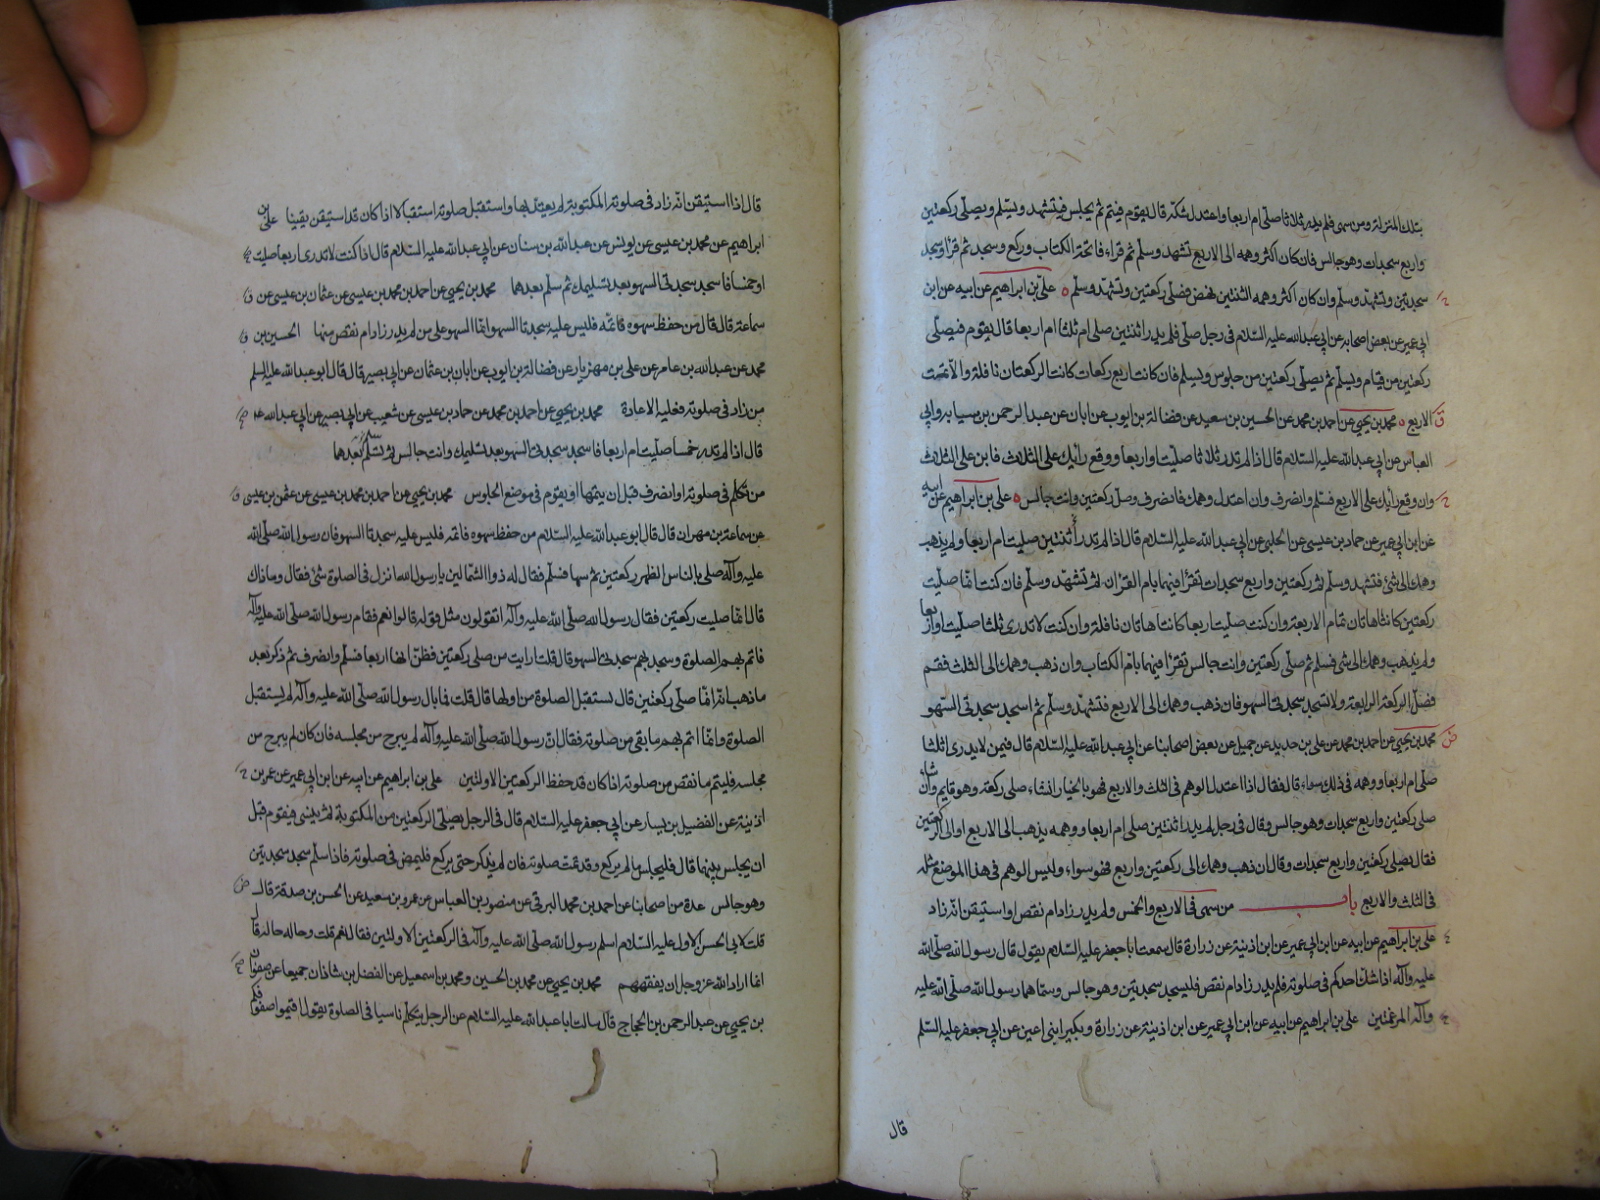 بتلك المنزلة ومن سهى فلم يدر ثلاثا صلى ام اربعا واعتدل شكه قال يقوم فيتم ثم يجلس فيتشهد ويسلم ويصلى ركعتين
واربع سجدات وهو جالس فان كان اكثر وهمه الى الاربع تشهد وسلم ثم قراء فاتحة الكتاب وركع وسجد ثم قرا وسجد
سجدتين وتشهد وسلم وان كان اكثر وهمه الثنتين نهض فصلى ركعتين وتشهد وسلم ه على بن ابراهيم عن ابيه عن ابن
ابى عمير عن بعض اصحابه عن ابى عبد الله عليه السلام فى رجل صلى فلم يدر اثنتين صلى ام ثلثا ام اربعا قال يقوم فيصلى
ركعتين من قيام ويسلم ثم يصلى ركعتين من جلوس ويسلم فان كانت اربع ركعات كانت الركعتان نافلة والا تمت
الاربع ه محمد بن يحيى عن احمد بن محمد عن الحسين بن سعيد عن فضالة بن ايوب عن ابان عن عبد الرحمن بن سيابه وابى
العباس عن ابى عبد الله عليه السلام قال اذا لم تدر ثلاثا صليت او اربعا ووقع رايك على الثلاث فابن على الثلاث
وان وقع رايك على الاربع فسلم وانصرف وان اعتدل وهمك فانصرف وصل ركعتين وانت جالس ه على بن ابراهيم عن ابيه
عن ابن ابى عمير عن حماد بن عيسى عن الحلبى عن ابى عبد الله عليه السلام قال اذا لم تدر أثنتين صليت ام اربعا ولم يذهب
وهمك الى شئ فتشهد وسلم ثم ركعتين واربع سجدات تقرا فيهما بام القران ثم تشهد وسلم فان كنت انما صليت
ركعتين كانتا هاتان تمام الاربعة وان كنت صليت اربعا كانتا هاتان نافلة وان كنت لا تدرى ثلثا صليت او اربعا
ولم يذهب وهمك الى شئ فسلم ثم صلى ركعتين وانت جالس تقرا فيهما بام الكتاب وان ذهب وهمك الى الثلث فقم
فصل الركعة الرابعة ولا تسجد سجدتى السهو فان ذهب وهمك الى الاربع فتشهد وسلم ثم اسجد سجدتى السهو
محمد بن يحيى عن احمد بن محمد عن على بن حديد عن جميل عن بعض اصحابنا عن ابى عبد الله عليه السلام قال فيمن لا يدرى اثلثا
صلى ام اربعا ووهمه فى ذلك سواء قال فقال اذا اعتدل الوهم فى الثلث والاربع فهو بالخيار ان شاء صلى ركعة وهو قايم وان شاء
صلى ركعتين واربع سجدات وهو جالس وقال فى رجل لم يدر اثنتين صلى ام اربعا ووهمه يذهب الى الاربع او الى الركعتين
فقال يصلى ركعتين واربع سجدات وقال ان ذهب وهمك الى ركعتين واربع فهو سواء وليس الوهم فى هذا الموضع مثله
فى الثلث والاربع باب من سهى فى الاربع والخمس ولم يدر زاد ام نقص او استيقن انه زاد
على بن ابراهيم عن ابيه عن ابن ابى عمير عن ابن اذينة عن زرارة قال سمعت ابا جعفر عليه السلام يقول قال رسول الله صلى الله
عليه وآله اذا شك احدكم فى صلوته فلم يدر زاد ام نقص فليسجد سجدتين وهو جالس وسماهما رسول الله صلى الله عليه
وآله المرغمتين على بن ابراهيم عن ابيه عن ابن ابى عمير عن ابن اذينة عن زرارة وبكير ابنى اعين عن ابى جعفر عليه السلم
قال
قال اذا استيقن انه زاد فى صلوته المكتوبة لم يعتد بها واستقبل صلوته استقبالا اذا كان قد استيقن يقينا على بن
ابراهيم عن محمد بن عيسى عن يونس عن عبد الله بن سنان عن ابى عبد الله عليه السلام قال اذا كنت لا تدرى اربعا صليت
او خمسا فاسجد سجدتى السهو بعد تسليمك ثم سلم بعدهما محمد بن يحيى عن احمد بن محمد بن عيسى عن عثمان بن عيسى عن
سماعة قال قال من حفظ سهوه فاتمه فليس عليه سجدتا السهو انما السهو على من لم يدر زاد ام نقص منها الحسين بن
محمد عن عبد الله بن عامر عن على بن مهزيار عن فضالة بن ايوب عن ابان بن عثمان عن ابى بصير قال قال ابو عبد الله عليه السلم
من زاد فى صلوته فعليه الاعادة محمد بن يحيى عن احمد بن محمد عن حماد بن عيسى عن شعيب عن ابى بصير عن ابى عبد الله عم
قال اذا لم تدر خمسا صليت ام اربعا فاسجد سجدتى السهو بعد تسليمك وانت جالس ثم تسلم بعدهما
من تكلم فى صلوته او انصرف قبل ان يتمها او يقوم فى موضع الجلوس محمد بن يحيى عن احمد بن محمد بن عيسى عن عثمن بن عيسى
عن سماعة بن مهران قال قال ابو عبد الله عليه السلام من حفظ سهوه فاتمه فليس عليه سجدتا السهو فان رسول الله صلى الله
عليه وآله صلى بالناس الظهر ركعتين ثم سها فسلم فقال له ذو الشمالين يا رسول الله انزل فى الصلوة شئ فقال وما ذاك
قال انما صليت ركعتين فقال رسول الله صلى الله عليه وآله اتقولون مثل قوله قالوا نعم فقام رسول الله صلى الله عليه وآله
فاتم بهم الصلوة وسجد بهم سجدتى السهو قال قلت ارايت من صلى ركعتين فظن انها اربعا فسلم وانصرف ثم ذكر بعد
ما ذهب انه انما صلى ركعتين قال يستقبل الصلوة من اولها قال قلت فما بال رسول الله صلى الله عليه وآله لم يستقبل
الصلوة وانما اتم بهم ما بقى من صلوته فقال ان رسول الله صلى الله عليه وآله لم يبرح من مجلسه فان كان لم يبرح من
مجلسه فليتم ما نقص من صلوته اذا كان قد حفظ الركعتين الاولتين على بن ابراهيم عن ابيه عن ابن ابى عمير عن عمر بن
اذينة عن الفضيل بن يسار عن ابى جعفر عليه السلام قال فى الرجل يصلى الركعتين من المكتوبة ثم ينسى فيقوم قبل
ان يجلس بينهما قال فليجلس ما لم يركع وقد تمت صلوته فان لم يذكر حتى يركع فليمض فى صلوته فاذا سلم سجد سجدتين
وهو جالس عدة من اصحابنا عن احمد بن محمد البرقى عن منصور بن العباس عن عمرو بن سعيد عن الحسن بن صدقة قال
قلت لابى الحسن الاول عليه السلام اسلم رسول الله صلى الله عليه وآله فى الركعتين الاولتين فقال نعم قلت وحاله حاله قال
انما اراد الله عز وجل ان يفقههم محمد بن يحيى عن محمد بن الحسين ومحمد بن اسمعيل عن الفضل بن شاذان جميعا عن صفوان
بن يحيى عن عبد الرحمن بن الحجاج قال سالت ابا عبد الله عليه السلام عن الرجل يتكلم ناسيا فى الصلوة يقول اقيموا صفوفكم